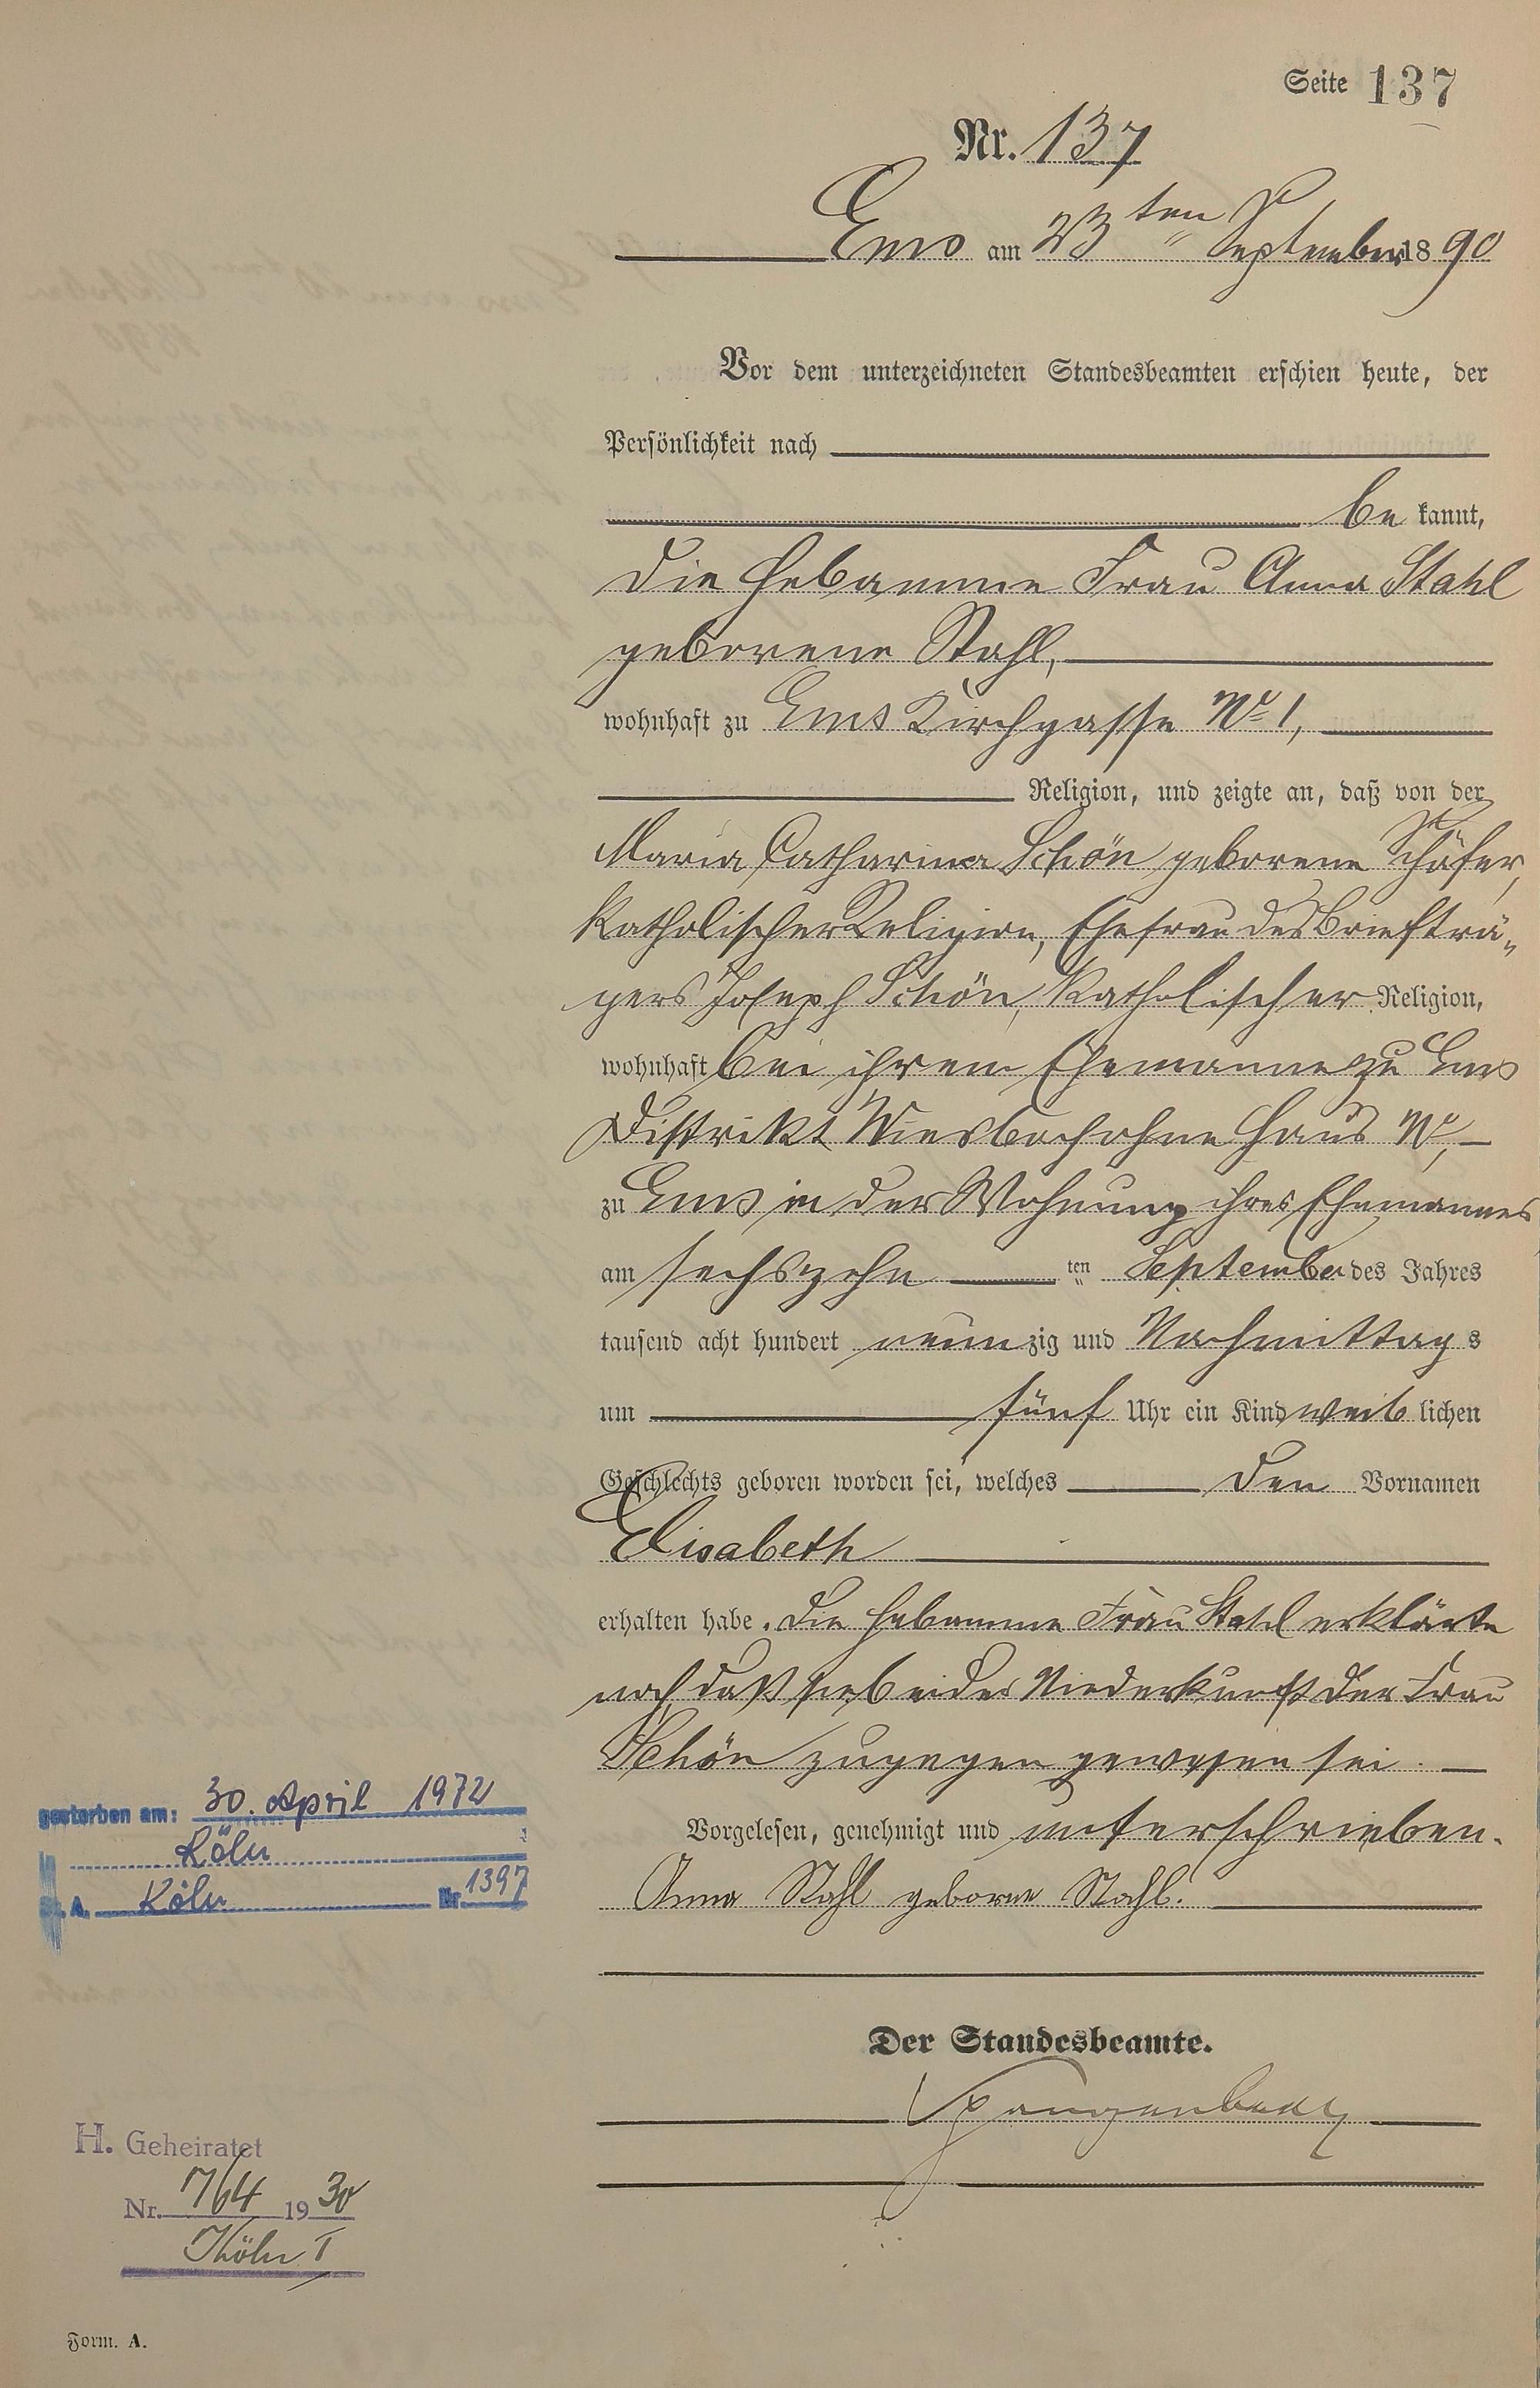 Seite 137
Nr. 137
Ems am 23ten September 1890
Vor dem unterzeichneten Standesbeamten erschien heute, der
Persönlichkeit nach
be kannt,
die Hebamme Frau Anna Stahl
geborene Stahl,
wohnhaft zu Ems Kirchgasse No 1,
Religion, und zeigte an, daß von der
Maria Catharina Schön geborene Schäfer,
katholischer Religion, Ehefrau des Briefträ-
gers Joseph Schön, katholischer Religion,
wohnhaft bei ihrem Ehemanne zu Ems
Distrikt Wiesbach ohne Haus No,
zu Ems in der Wohnung ihres Ehemannes
am sechszehn ten September des Jahres
tausend acht hundert neunzig und Nachmittags
um fünf Uhr ein Kind weiblichen
Geschlechts geboren worden sei, welches den Vornamen
Elisabeth
erhalten habe. Die Hebamme Frau Stahl erklärte
noch, daß sie bei der Niederkunft der Frau
Schön zugegen gewesen sei.
Vorgelesen, genehmigt und unterschrieben.
Anna Stahl geborne Stahl.
Der Standesbeamte.
gestorben am: 30. April 1972
Köln
St. A. Köln Nr. 1397
H. Geheiratet
Nr. 764 1930
Köln I
Form. A.